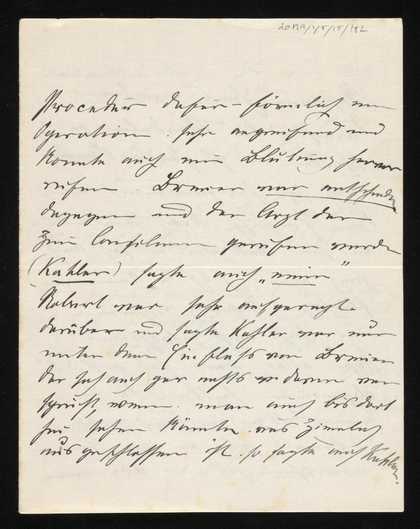 Procedur dafür – förmlich eine
Operation. sehr angreifend und
könnte auch eine Blutung hervor
rufen Breuer war entschieden
dagegen und der Arzt der
zum Consilium gerufen wurde
(Kahler) sagte auch „nein"
Robert war sehr aufgeregt
darüber und sagte Kahler war nur
unter dem Einfluss von Breuer
der ja auch gar nichts
wenn man auch bis dort
zu sehen könnte was ziemlich
ausgeschlossen ist. so sagte auch Kahler.